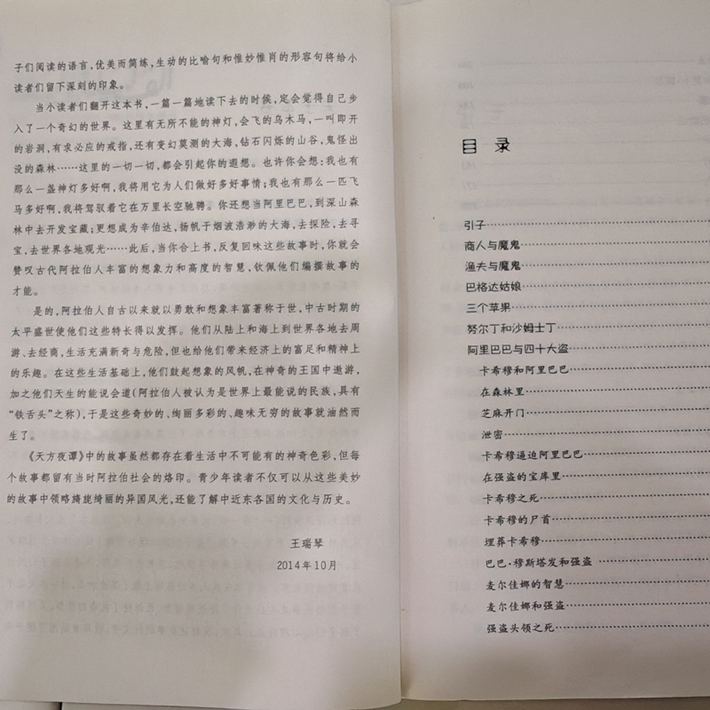 子们阅读的语言,优美而简练,生动的比喻句和惟妙惟肖的形容句将给小
读者们留下深刻的印象。
当小读者们翻开这本书,一篇一篇地读下去的时候,定会觉得自己步
入了一个奇幻的世界。这里有无所不能的神灯,会飞的乌木马,一叫即开
的岩洞,有求必应的戒指,还有变幻莫测的大海,钻石闪烁的山谷,鬼怪出
没的森林……这里的一切一切,都会引起你的遐想。也许你会想:我也有
那么一盏神灯多好啊,我将用它为人们做好多好事情;我也有那么一匹飞
马多好啊,我将驾驭着它在万里长空驰骋。你还想当阿里巴巴,到深山森
林中去开发宝藏;更想成为辛伯达,扬帆于烟波浩渺的大海,去探险,去寻
宝,去世界各地观光……此后,当你合上书,反复回味这些故事时,你就会
赞叹古代阿拉伯人丰富的想象力和高度的智慧,钦佩他们编撰故事的
才能。
是的,阿拉伯人自古以来就以勇敢和想象丰富著称于世,中古时期的
太平盛世使他们这些特长得以发挥。他们从陆上和海上到世界各地去周
游、去经商,生活充满新奇与危险,但也给他们带来经济上的富足和精神上
的乐趣。在这些生活基础上,他们鼓起想象的风帆,在神奇的王国中遨游,
加之他们天生的能说会道(阿拉伯人被认为是世界上最能说的民族,具有
“铁舌头”之称),于是这些奇妙的、绚丽多彩的、趣味无穷的故事就油然而
生了。
《天方夜谭》中的故事虽然都存在着生活中不可能有的神奇色彩,但每
个故事都留有当时阿拉伯社会的烙印。青少年读者不仅可以从这些美妙
的故事中领略旖旎绮丽的异国风光,还能了解中近东各国的文化与历史。
王瑞琴
2014年10月
目 录
引子
商人与魔鬼
渔夫与魔鬼
巴格达姑娘
三个苹果
努尔丁和沙姆士丁
阿里巴巴与四十大盗
卡希穆和阿里巴巴
在森林里
芝麻开门
泄密
卡希穆逼迫阿里巴巴
在强盗的宝库里
卡希穆之死
卡希穆的尸首
埋葬卡希穆
巴巴·穆斯塔发和强盗
麦尔佳娜的智慧
麦尔佳娜和强盗
强盗头领之死